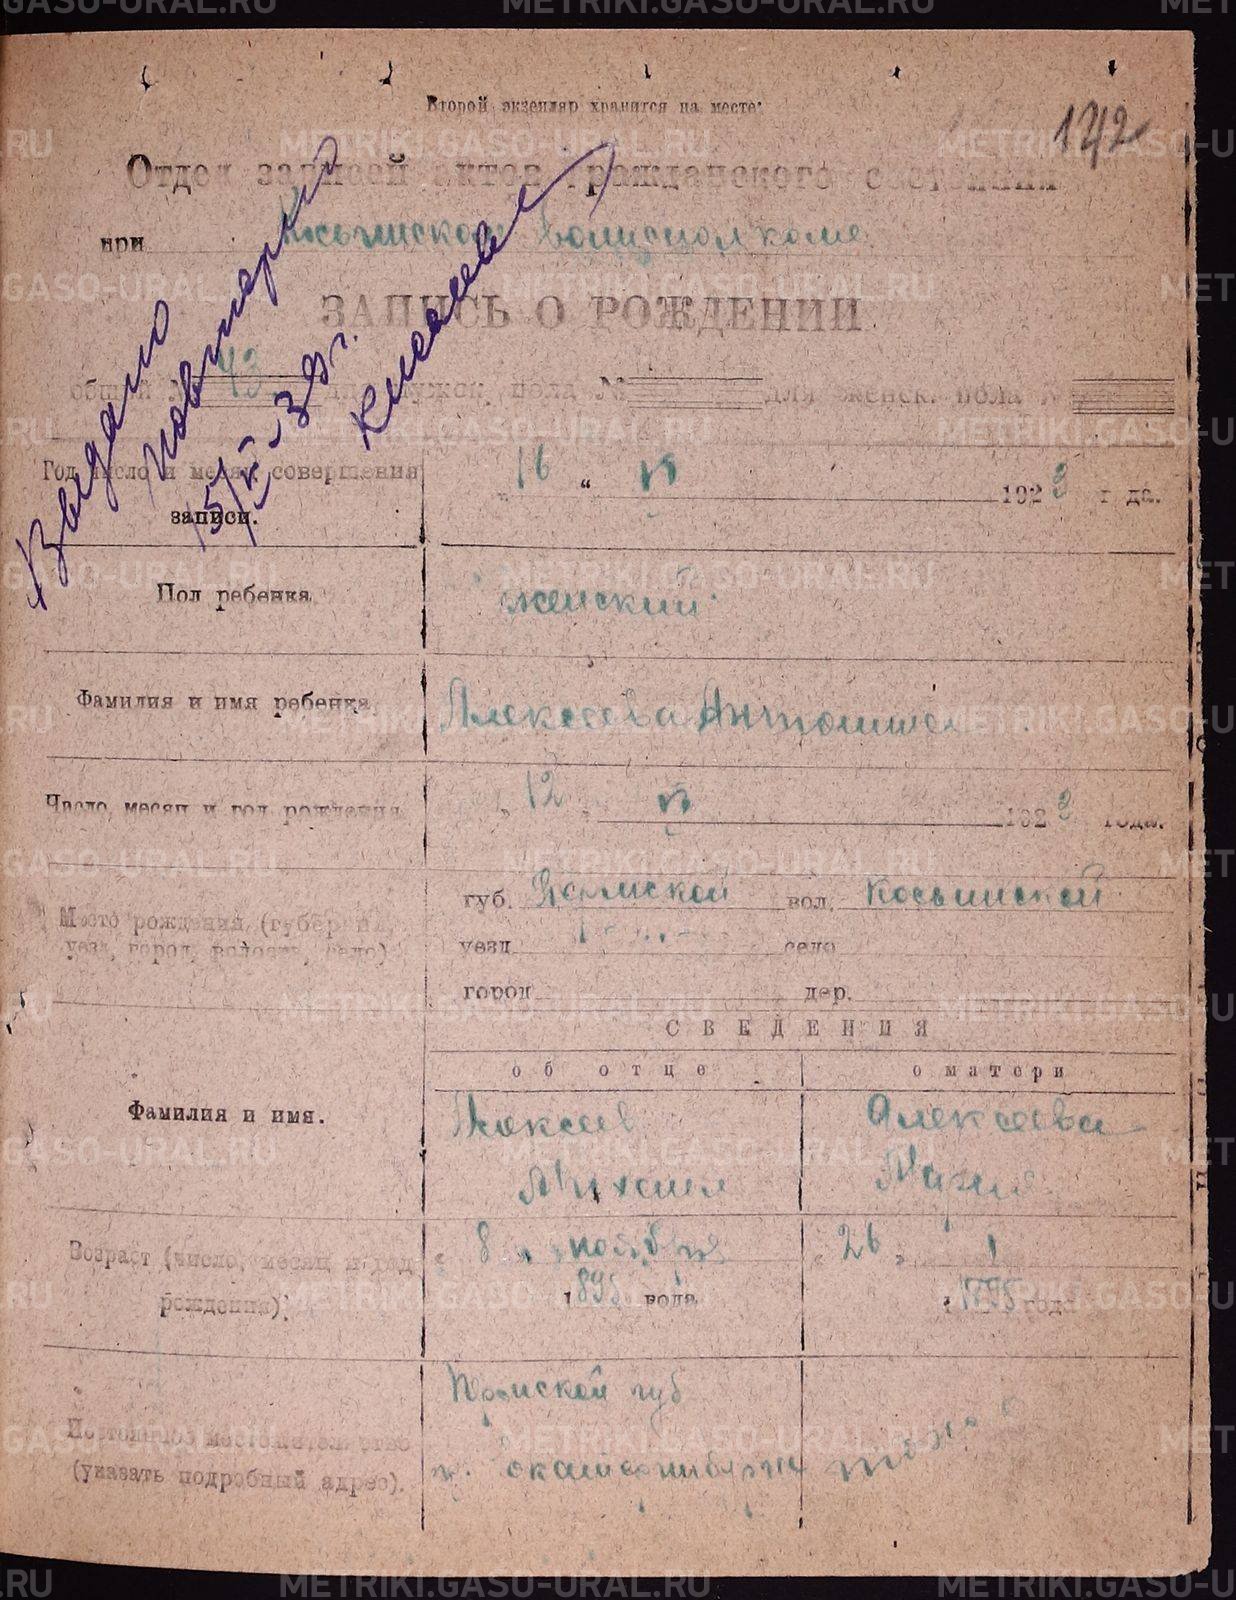 METRIKI.GASO-URAL.RU
Второй экземпляр хранится на месте:
142
Отдел записей актов гражданского состояния
при Косьинском Волисполкоме
ЗАПИСЬ О РОЖДЕНИИ
Выдано
повторно
15/VI-39 г.
общий № 43 для мужск. пола № для женск. пола №
Год число и месяц совершения
записи.
" 16 " VI 1923 года.
Пол ребенка
женский
Фамилия и имя ребенка.
Алексеева Антонина
Число, месяц и год рождения
" 12 " VI 1923 года.
Место рождения (губерния,
уезд, город, волость, село)
губ. Пермской вол. Косьинской
уезд село
город дер.
СВЕДЕНИЯ
об отце о матери
Фамилия и имя.
Алексеев Алексеева
Михаил Мария
Возраст (число, месяц и год
рождения):
" 8 " ноября " 26 " 1
189 года 1895 года
Постоянное местожительство
(указать подробный адрес).
Пермской губ